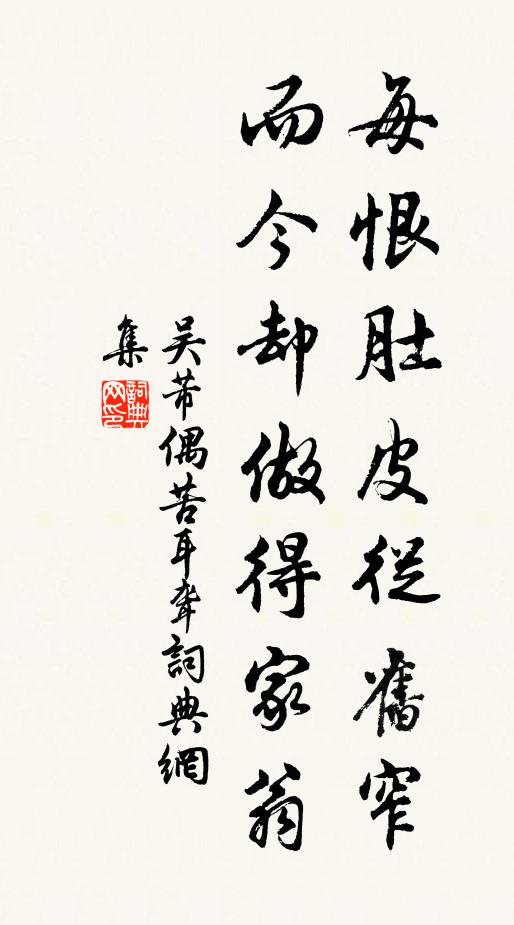 每恨肚皮從舊窄
而今却做得家翁
吴芾偶苦耳聋詞典網
集
詞典
网印